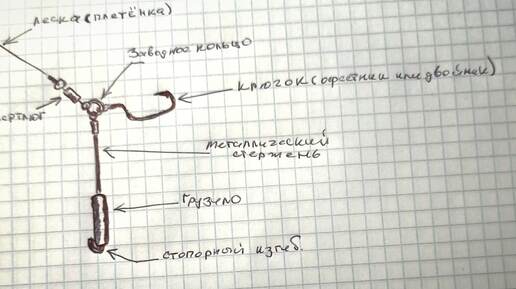 леска (плетёнка)
Заводное кольцо
крючок (офсетник или двойник)
ертлюг
металлический
стержень
грузило
стопорный изгиб.